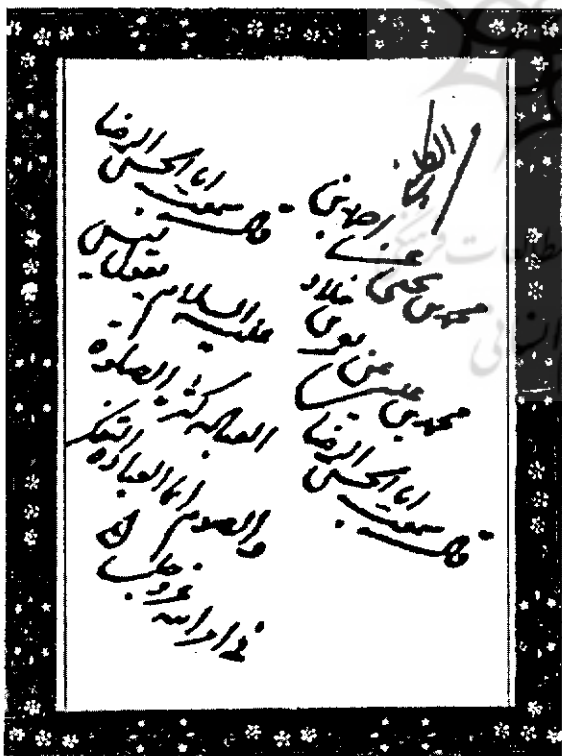 الكافي
محمد بن يحيى عن احمد بن
محمد بن عيسى عن معمر بن خلاد
قال سمعت ابا الحسن الرضا
قال سمعت ابا الحسن الرضا
عليه السلام يقول ليس
العباده كثرة الصلوة
والصوم انما العبادة التفكر
في امر الله عز و جل